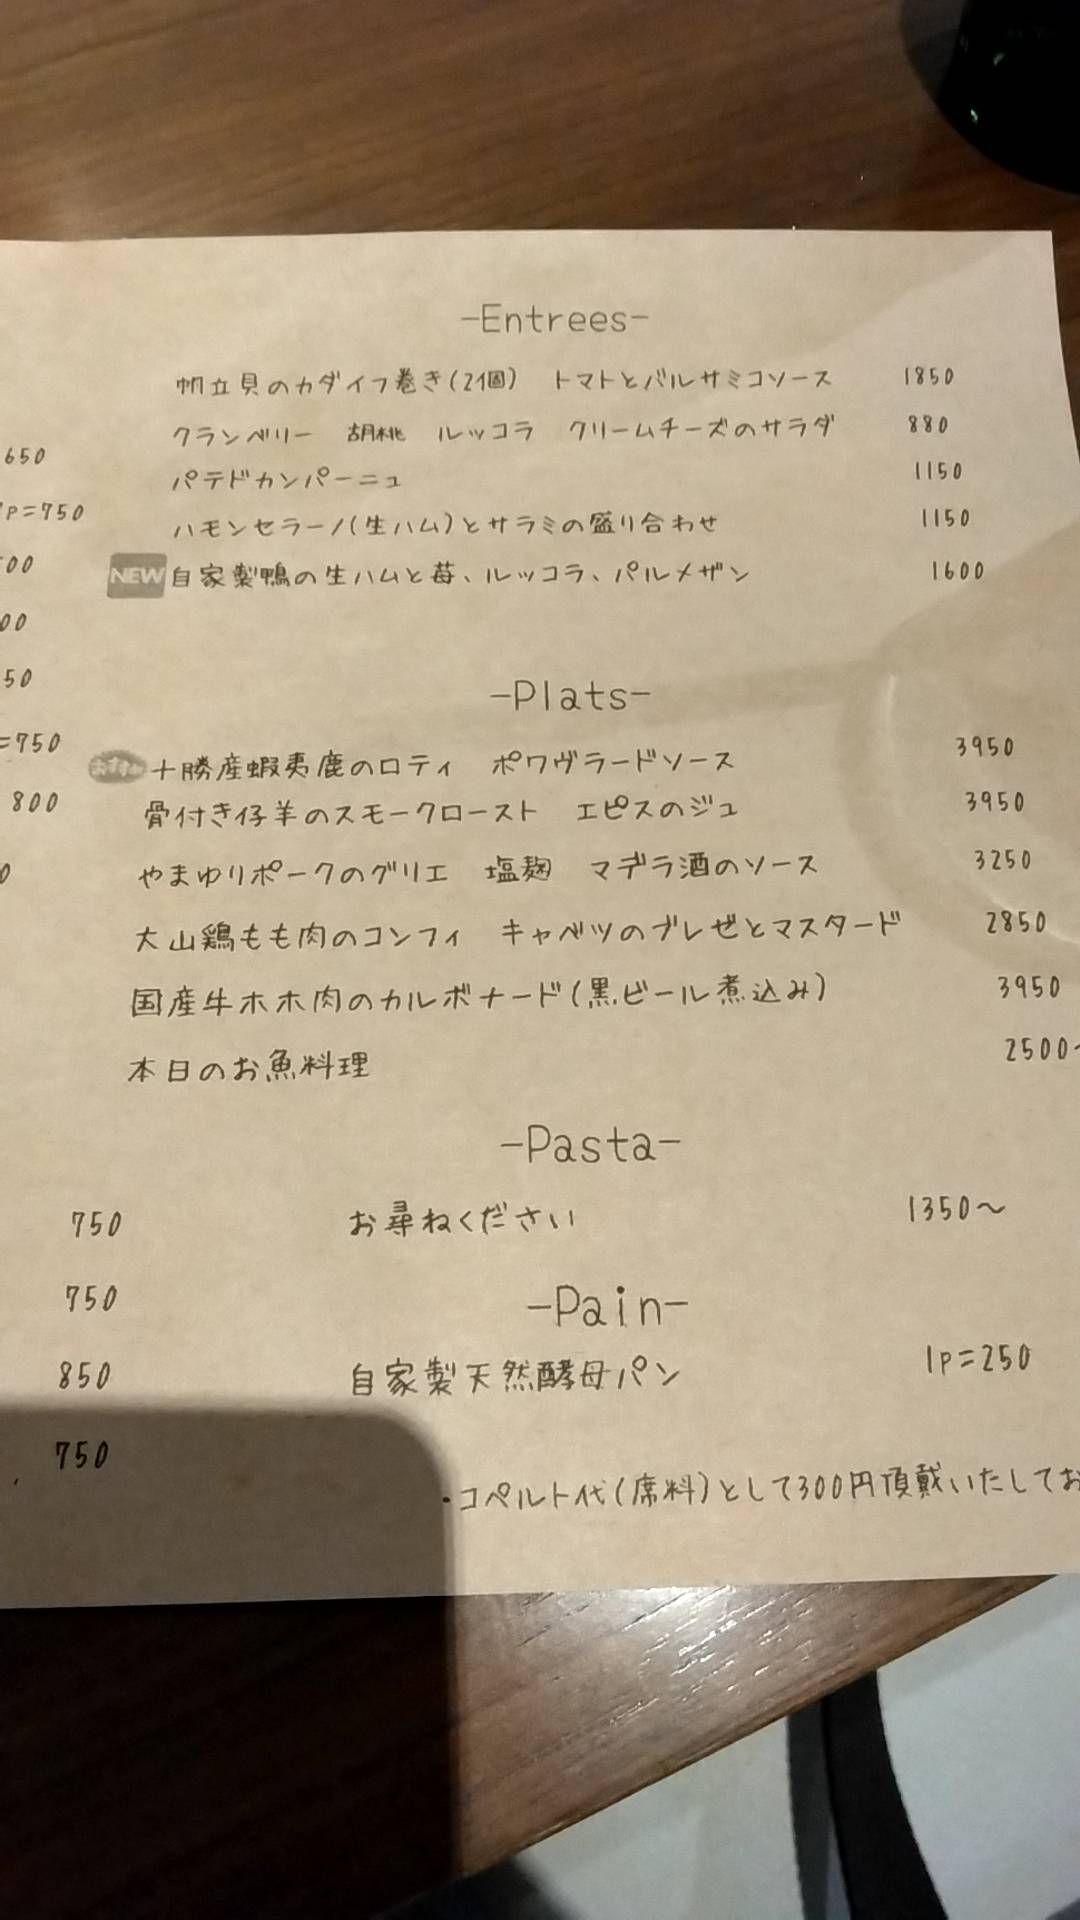 -Entrees-
帆立貝のカダイフ巻き(2個) トマトとバルサミコソース 1850
クランベリー 胡桃 ルッコラ クリームチーズのサラダ 880
パテドカンパーニュ 1150
ハモンセラーノ(生ハム)とサラミの盛り合わせ 1150
NEW 自家製鴨の生ハムと苺、ルッコラ、パルメザン 1600
-Plats-
おすすめ 十勝産蝦夷鹿のロティ ポワヴラードソース 3950
骨付き仔羊のスモークロースト エピスのジュ 3950
やまゆりポークのグリエ 塩麹 マデラ酒のソース 3250
大山鶏もも肉のコンフィ キャベツのブレゼとマスタード 2850
国産牛ホホ肉のカルボナード(黒ビール煮込み) 3950
本日のお魚料理 2500~
-Pasta-
お尋ねください 1350~
-Pain-
自家製天然酵母パン 1P=250
・コペルト代(席料)として300円頂戴いたしてお
650
P=750
00
00
50
=750
800
0
750
750
850
750